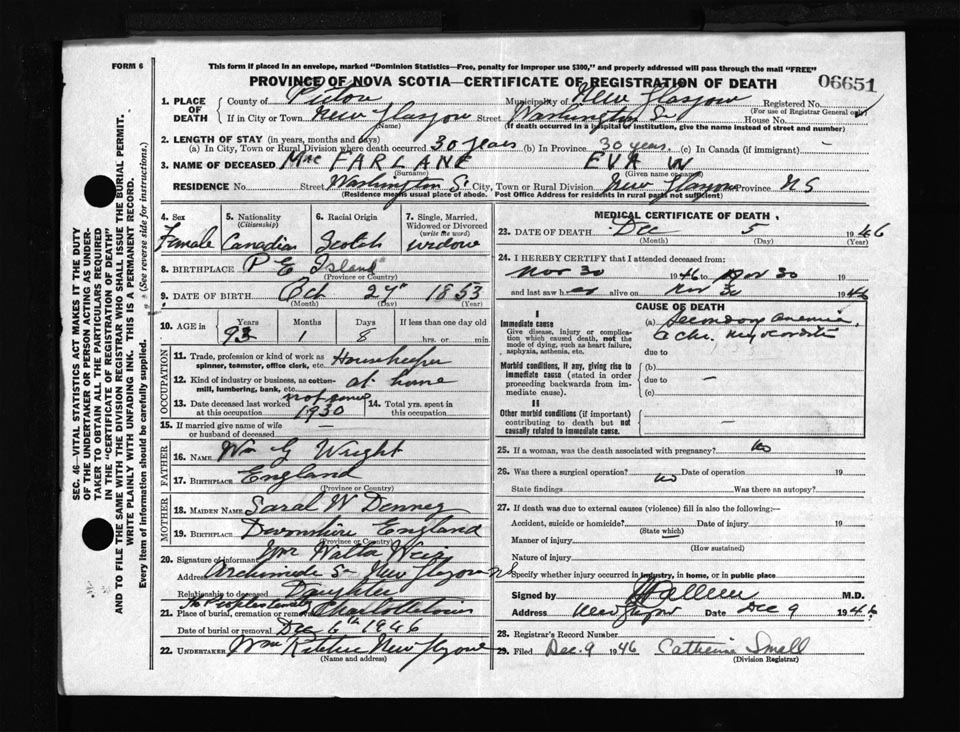 FORM 6
This form if placed in an envelope, marked “Dominion Statistics—Free, penalty for improper use $300,” and properly addressed will pass through the mail “FREE”
PROVINCE OF NOVA SCOTIA—CERTIFICATE OF REGISTRATION OF DEATH
06651
1. PLACE OF DEATH
County of Pictou Municipality of New Glasgow Registered No.
(For use of Registrar General only)
If in City or Town New Glasgow Street Washington St House No.
(Name) (If death occurred in a hospital or institution, give the name instead of street and number)
2. LENGTH OF STAY (in years, months and days)
(a) In City, Town or Rural Division where death occurred 30 years (b) In Province 30 years. (c) In Canada (if immigrant) -
3. NAME OF DECEASED MacFARLANE EVA W
(Surname) (Given name or names)
RESIDENCE No. Street Washington St City, Town or Rural Division New Glasgow Province N S
(Residence means usual place of abode. Post Office Address for residents in rural parts not sufficient)
4. Sex
Female
5. Nationality
(Citizenship)
Canadian
6. Racial Origin
Scotch
7. Single, Married, Widowed or Divorced
(write the word)
widow
8. BIRTHPLACE P E Island
(Province or Country)
9. DATE OF BIRTH Oct 27" 1853
(Month) (Day) (Year)
10. AGE in
Years Months Days If less than one day old
93 1 8 hrs. or min.
OCCUPATION
11. Trade, profession or kind of work as Housekeeper
spinner, teamster, office clerk, etc.
12. Kind of industry or business, as cotton- at home
mill, lumbering, bank, etc.
13. Date deceased last worked
at this occupation 1930
14. Total yrs. spent in
this occupation
15. If married give name of wife
or husband of deceased —
FATHER
16. NAME Wm G Wright
17. BIRTHPLACE England
(Province or Country)
MOTHER
18. MAIDEN NAME Sarah W Denney
19. BIRTHPLACE Devonshire England
(Province or Country)
20. Signature of informant Mrs Walter Weir
Address Archimedes St New Glasgow NS
Relationship to deceased Daughter
21. Place of burial, cremation or removal Peoples Cemetery Charlottetown
Date of burial or removal Dec 6th 1946
22. UNDERTAKER Wm Ritchie New Glasgow
(Name and address)
MEDICAL CERTIFICATE OF DEATH
23. DATE OF DEATH Dec 5 1946
(Month) (Day) (Year)
24. I HEREBY CERTIFY that I attended deceased from:
Nov 30 1946 to Nov 30 19
and last saw her alive on Nov 30 1946
CAUSE OF DEATH
I
Immediate cause
Give disease, injury or complication which caused death, not the mode of dying, such as heart failure, asphyxia, asthenia, etc.
(a) Secondary anemia,
& chr. myocarditis
due to
Morbid conditions, if any, giving rise to immediate cause (stated in order proceeding backwards from immediate cause).
(b)
due to —
(c)
II
Other morbid conditions (if important) contributing to death but not causally related to immediate cause. —
25. If a woman, was the death associated with pregnancy? No
26. Was there a surgical operation? No Date of operation 19
State findings Was there an autopsy?
27. If death was due to external causes (violence) fill in also the following:-
Accident, suicide or homicide? Date of injury 19
(State which)
Manner of injury
(How sustained)
Nature of injury
Specify whether injury occurred in industry, in home, or in public place
Signed by M.D.
Address New Glasgow Date Dec 9 1946
28. Registrar's Record Number
29. Filed Dec. 9 1946 Catherine Small
(Division Registrar)
SEC. 46—VITAL STATISTICS ACT MAKES IT THE DUTY
OF THE UNDERTAKER OR PERSON ACTING AS UNDER-
TAKER TO OBTAIN ALL THE PARTICULARS REQUIRED
IN THE “CERTIFICATE OF REGISTRATION OF DEATH”
AND TO FILE THE SAME WITH THE DIVISION REGISTRAR WHO SHALL ISSUE THE BURIAL PERMIT.
WRITE PLAINLY WITH UNFADING INK. THIS IS A PERMANENT RECORD.
Every item of information should be carefully supplied. (See reverse side for instructions.)